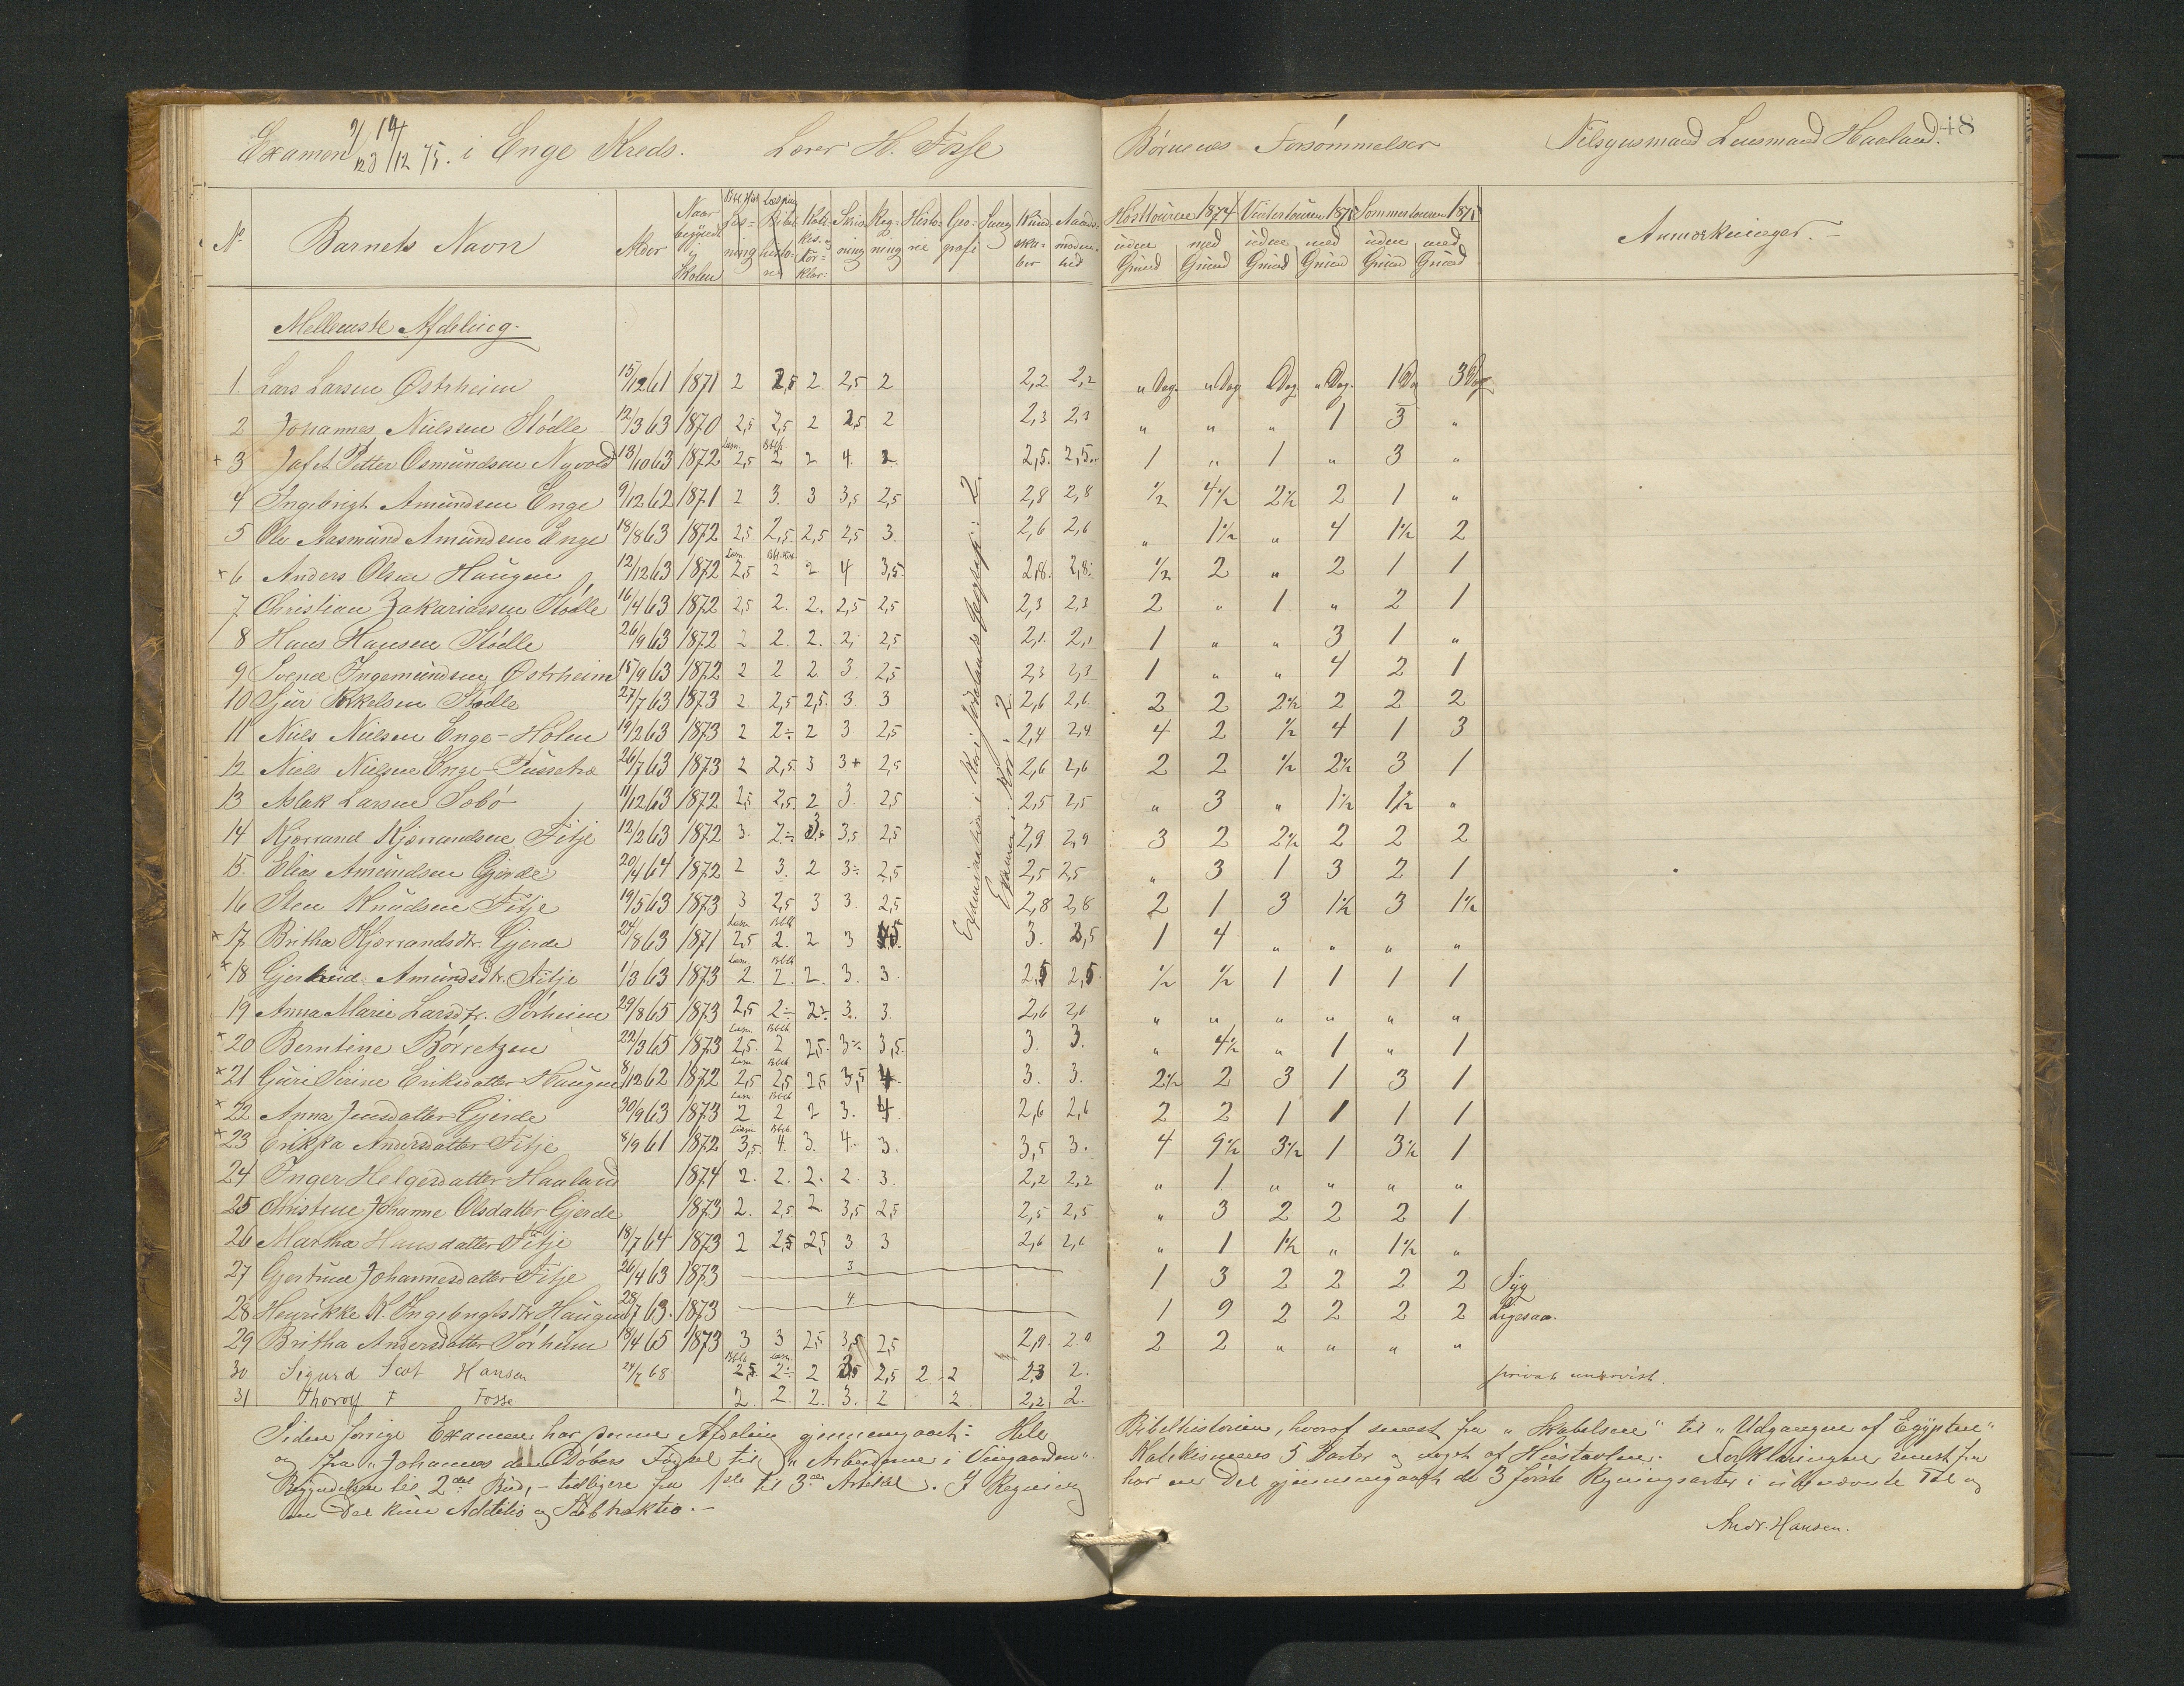 Examen 9/12 14/12 75. i Enge Kreds. Lærer H. Fosse
Børnenes Forsømmelser Tilsynsmand Lensmand Haaland. 48
No Barnets Navn Alder Naar begyndt i Skolen Læsning Bibelhistorie Katekis. og Forklar: Skrivning Regning Historie Geografi Sang Kundskaber Aandsmodenhed
Høsttouren 1874 Vintertouren 1875 Sommertouren 1875 Anmærkninger.-
uden Grund med Grund uden Grund med Grund uden Grund med Grund
Mellemste Afdeling.
1. Lars Larsen Østrheim 15/12 61 1871 2 2,5 2. 2,5 2 2,2 2,2 " Dag. " Dag " Dag " Dag. 1 Dag 3 Dag
2 Johannes Nielsen Stødle 12/3 63 1870 2,5 2,5 2 2,5 2 2,3 2,3 " " " 1 3 "
+ 3 Jafet Petter Osmundsen Nyvold 13/10 63 1872 2,5 2 2 4. 2. 2,5. 2,5. 1 " 1 " 3 "
4 Ingebrigt Amundsen Enge 9/12 62 1871 2 3. 3 3,5 2,5 2,8 2,8 1/2 4 1/2 2 1/2 2 1 "
5 Ole Aasmund Amundsen Enge 18/8 63 1872 2,5 2,5 2,5 2,5 3. 2,6 2,6 " 1 1/2 " 4 1 1/2 2
+ 6 Anders Olsen Haugen 12/12 63 1872 2,5 2 2 4 3,5 2,8. 2,8. 1/2 2 " 2 1 1
7 Christian Zakariassen Stødle 16/4 63 1872 2,5 2. 2. 2,5 2,5 2,3 2,3 2 " 1 " 2 1
8 Hans Hansen Stødle 26/9 63 1872 2 2. 2. 2. 2,5 2,1. 2,1 1 " " 3 1 "
9 Svend Ingemundsen Østrheim 15/9 63 1872 2 2 2 3. 2,5 2,3 2,3 1 " " 4 2 1
10 Sjur Torkelsen Stødle 27/7 63 1873 2 2,5 2,5 3. 3 2,6 2,6 2 2 2 1/2 2 2 2
11 Niels Nielsen Enge-Holen 19/2 63 1873 2 2÷ 2 3 2,5 2,4 2,4 4 2 1/2 4 1 3
12 Niels Nielsen Enge- 26/7 63 1873 2 2,5 3 3+ 2,5 2,6 2,6 2 2 1/2 2 1/2 3 1
13 Aslak Larsen Sæbø 11/12 63 1872 2,5 2,5 2 3. 2,5 2,5 2,5 " 3 " 1 1/2 1 1/2 "
14 Kjærrand Kjærrandsen Fitje 12/2 63 1872 3. 2÷ 3 3,5 2,5 2,9 2,9 3 2 2 1/2 2 2 2
15. Elias Amundsen Gjerde 20/4 64 1872 2 3. 2 3÷ 2,5 2,5 2,5 " 3 1 3 2 1
16 Sten Knudsen Fitje 19/5 63 1873 3 2,5 3 3. 2,5 2,8 2,8 2 1 3 1 1/2 3 1 1/2
× 17 Britha Kjærrandsdtr. Gjerde 24/8 63 1871 2,5 2. 2 3 3. 3,5 1 4 " " " "
+ 18 Gjertrud Amundsdtr. Fitje 1/3 63 1873 2. 2. 2. 3. 3. 2,5 2,5. 1/2 1/2 1 1 1 1
19 Anna Marie Larsdtr. Sørheim 29/8 65 1873 2,5 2÷ 2÷ 3. 3. 2,6 2,6 " " " " " "
× 20 Berntine Børretzen 22/3 65 1873 2,5. 2 2,5. 3÷ 3,5. 3. 3. " 4 1/2 " 1 " 1
× 21 Guri Serine Eriksdatter Haugen 8/12 62 1872 2,5 2,5 2,5 3,5 4. 3. 3. 2 1/2 2 3 1 3 1
× 22 Anna Jensdatter Gjerde 30/9 63 1873 2 2 2 3. 4. 2,6 2,6 2 2 1 1 1 1
× 23 Erikka Andersdatter Fitje 8/9 61 1872 3,5 4. 3. 4. 3. 3,5 3. 4 9 1/2 3 1/2 1 3 1/2 1
24 Inger Helgesdatter Haaland 1874 2. 2. 2. 2 3. 2,2 2,2 " 1 " " " "
25 Christine Johanne Olsdatter Gjerde 1873 2. 2,5 2. 3,5 2,5 2,5 2,5 " 3 2 2 2 1
26 Martha Hansdatter Fitje 18/7 64 1873 2 2,5 2,5 3 3 2,6 2,6 " 1 1 1/2 " 1 1/2 "
27 Gjertrud Johannesdatter Fitje 26/4 63 1873 3 1 3 2 2 2 2 Syg
28 Henrikke K. Ingebrigtsdtr Haugen 28/7 63. 1873 4 1 9 2 2 2 2 Ligesaa.
29 Britha Andersdatter Sørheim 18/4 65 1873 3 3 2,5 3,5 2,5 2,9 2.9 2 2 " " " "
30 Sigurd Scot Hansen 24/7 68 2,5. 2÷ 2 2,5 2 2 2,3 2. privat undervist.
31 Thorolf F Fosse 2. 2. 2. 3. 2 2. 2,2 2.
Examination i Fædrelands Geografi: 2.
Examen i Kor: 2
Siden forrige Examen har denne Afdeling gjennemgaaet: Hele Bibelhistorien, hvoraf senest fra "Skabelsen" til "Udgangen af Egypten"
og fra "Johannes den Døbers Fødsel til "Arbeiderne i Viingaarden". Katekismens 5 Parter og noget af Huustavlen. Forklaringen senest fra
Begyndelsen til 2det Bud, - tidligere fra 1ste til 3die Artikel. I Regning har en Del gjennemgaaet de 3 første Regningsarter i ubenævnte Tal og
en Del kun Additio og Subtraktio.-
Andr. Hansen.